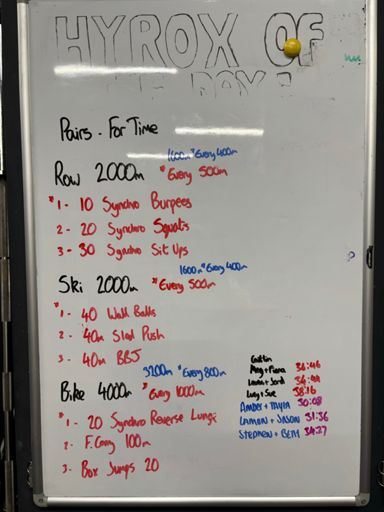 HYROX OF
THE DAY!
Pairs - For Time
1600m *Every 400m
Row 2000m *Every 500m
*1 - 10 Synchro Burpees
2 - 20 Synchro Squats
3 - 30 Synchro Sit Ups
1600m *Every 400m
Ski 2000m *Every 500m
*1 - 40 Wall Balls
2 - 40m Sled Push
3 - 40m BBJ
3200m *Every 800m
Bike 4000m *Every 1000m
*1 - 20 Synchro Reverse Lunge
2 - F. Carry 100m
3 - Box Jumps 20
Caitlin
Meg + Fiona 36:46
Laura + Jordi 34:44
Lucy + Sue 38:16
AMBER + TAYLA 30:08
LAMON + JASON 31:36
STEPHEN + BETH 34:27